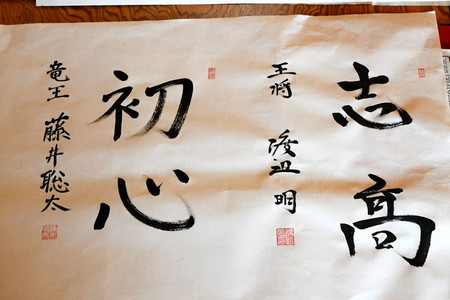 志高
王将 渡辺明
初心
竜王 藤井聡太